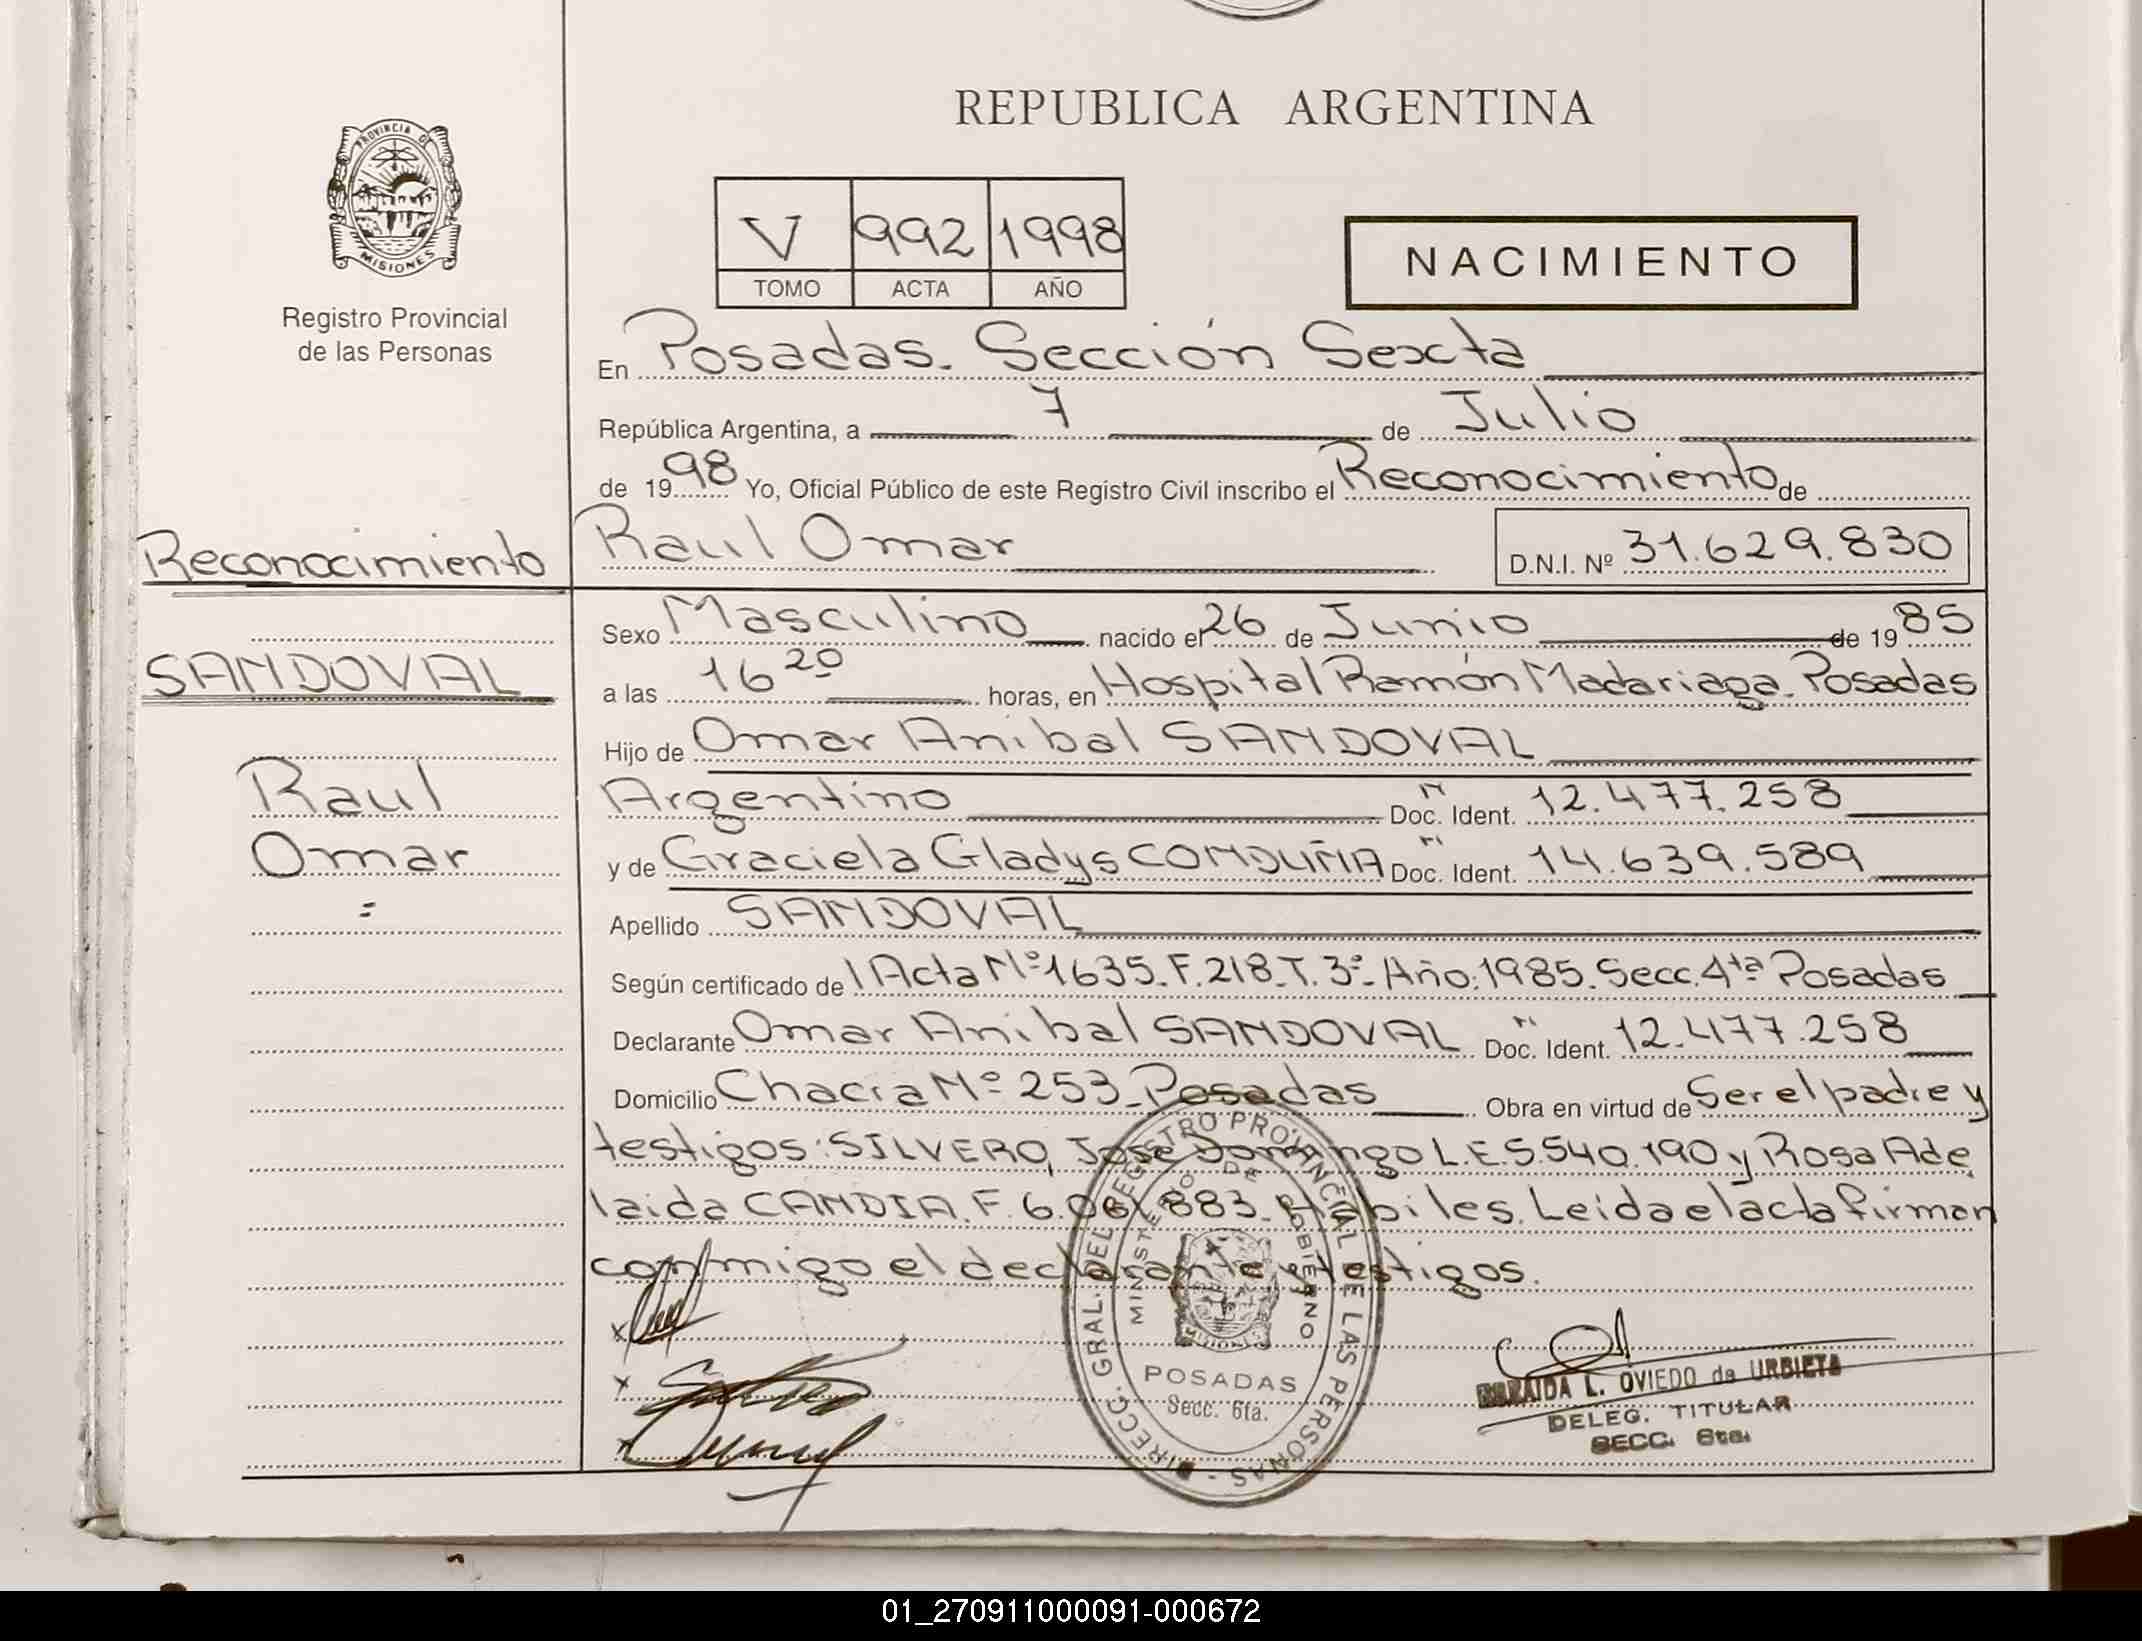 REPUBLICA ARGENTINA
PROVINCIA DE
MISIONES
Registro Provincial
de las Personas
V 992 1998
TOMO ACTA AÑO
NACIMIENTO
En Posadas. Sección Sexta
República Argentina, a 7 de Julio
de 1998 Yo, Oficial Público de este Registro Civil inscribo el Reconocimiento de
Raul Omar D.N.I. Nº 31.629.830
Reconocimiento
SANDOVAL
Raul
Omar
=
Sexo Masculino nacido el 26 de Junio de 1985
a las 16 20 horas, en Hospital Ramón Madariaga. Posadas
Hijo de Omar Anibal SANDOVAL
Argentino Doc. Ident. 12.477.258
y de Graciela Gladys Doc. Ident. 14.639.589
Apellido SANDOVAL
Según certificado de 1 Acta Nº 1635. F. 218. T. 3º. Año: 1985. Secc. 4ta Posadas
Declarante Omar Anibal SANDOVAL Doc. Ident. 12.477.258
Domicilio Chacra Nº 253. Posadas Obra en virtud de Ser el padre y
testigos: SILVERO, José Domingo L.E. 5.540.190 y Rosa Ade
laida CANDIA. F. 6. 883. Habiles. Leida el acta firman
conmigo el declarante y testigos.
DIRECC. GRAL. DEL REGISTRO PROVINCIAL DE LAS PERSONAS
MINISTERIO DE GOBIERNO
MISIONES
POSADAS
Secc. 6ta.
L. OVIEDO de URBIETA
DELEG. TITULAR
SECC. 6ta.
01_270911000091-000672